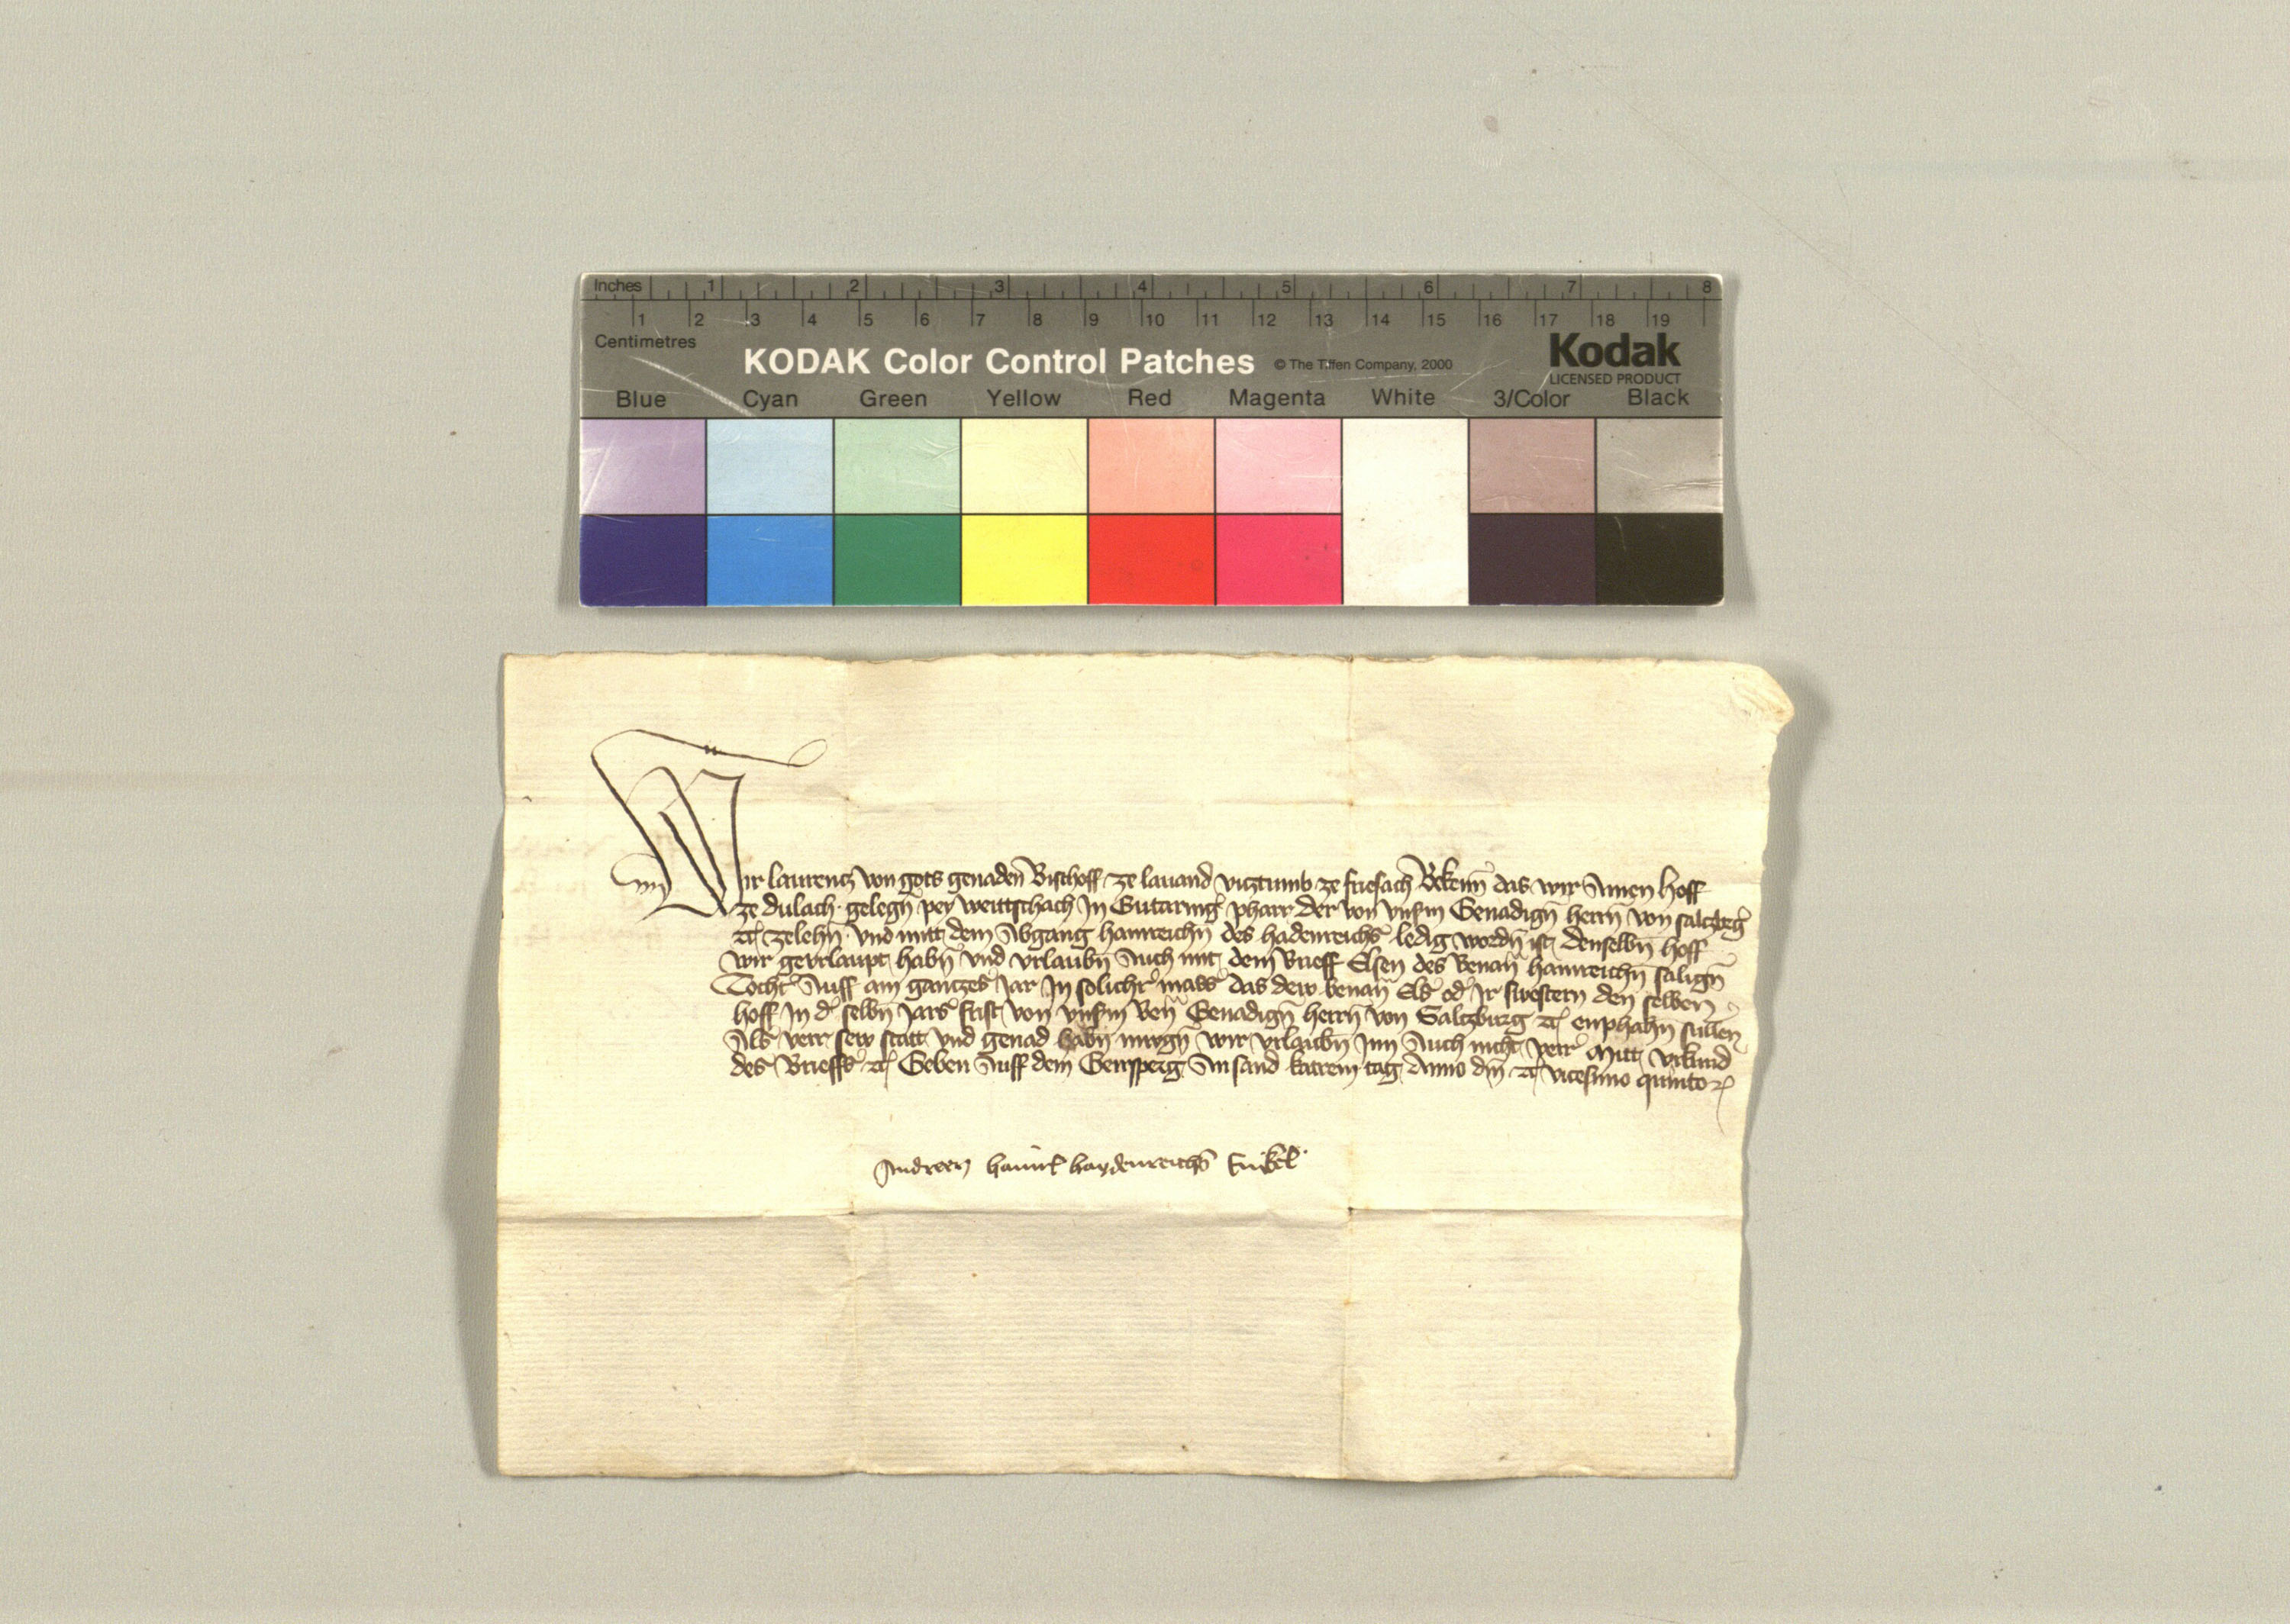 Inches 1 2 3 4 5 6 7 8
1 2 3 4 5 6 7 8 9 10 11 12 13 14 15 16 17 18 19
Centimetres
KODAK Color Control Patches © The Tiffen Company, 2000 Kodak
LICENSED PRODUCT
Blue Cyan Green Yellow Red Magenta White 3/Color Black
Wir laurentz von gots genaden Bischoff ze lauand viztumb ze friesach Bekenn das wir Ainen hoff
ze dulach gelegn pey weittschach In Guttaring pharr der von vnsm Genadign herrn von saltzbrg
zelehn vnd mitt dem Abgang hainreichn des hadenreichs ledig wordn ist denselbn hoff
wir gevrlaupt habn vnd vrlaubn Auch mit dem brieff Elsen des Benan hainreichn salign
Tocht Auff ain gantzes Jar In solicher mass das dew benan Els od Ir swestern den selben
hoff In d selbn Jars frist von vnsm Ben Genadign herrn von Saltzburg enphahn sullen
Als verr sew statt vnd genad habn mugn wir vrlaubn Inn Auch nicht verr Mitt vrkund
des Brieffs Geben Auff dem Geyrsperg An sand katrein tag Anno dm vicesimo quinto
Andreen hainr haydenreichs Enikel